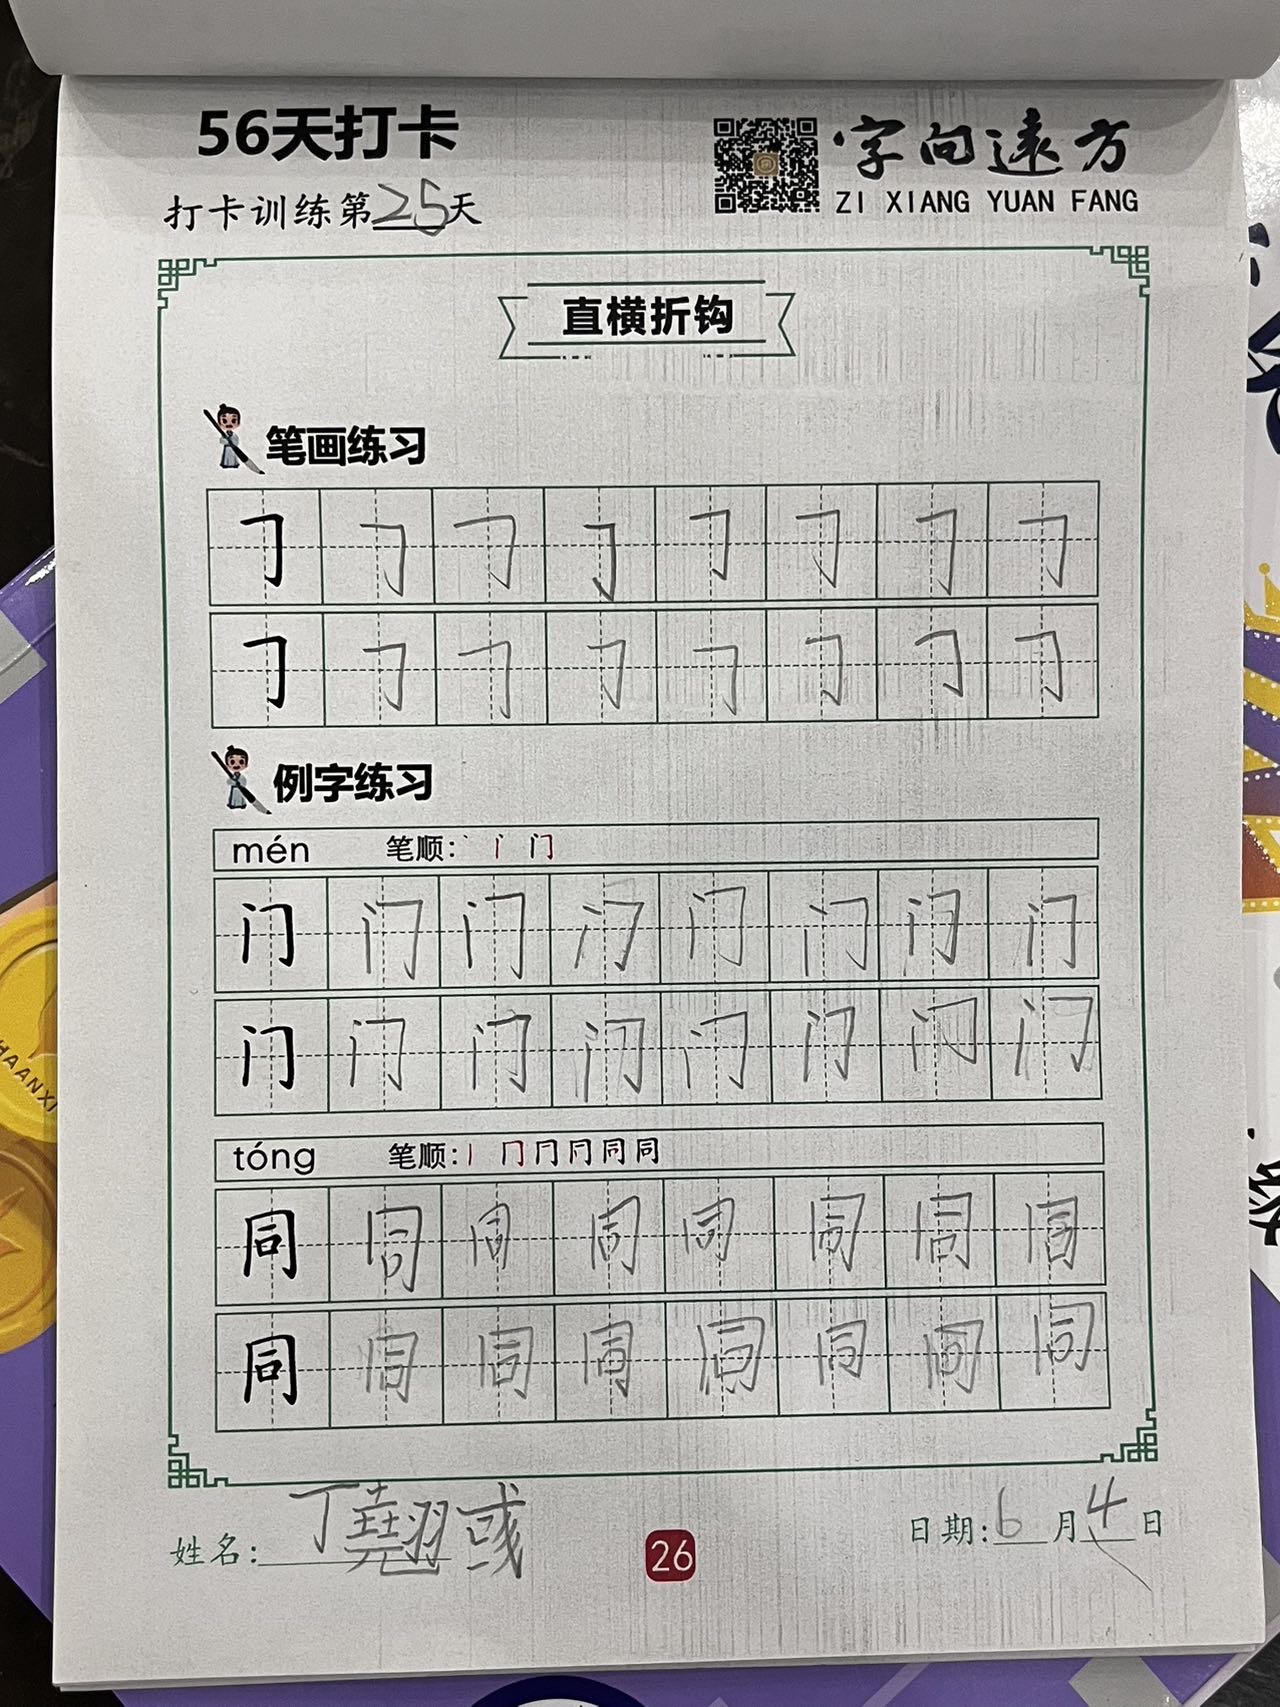 56天打卡
字向遠方
ZI XIANG YUAN FANG
打卡训练第25天
直横折钩
笔画练习
𠃌 𠃌 𠃌 𠃌 𠃌 𠃌 𠃌 𠃌
𠃌 𠃌 𠃌 𠃌 𠃌 𠃌 𠃌 𠃌
例字练习
mén 笔顺: 丶 门
门 门 门 门 门 门 门 门
门 门 门 门 门 门 门 门
tóng 笔顺: 丨 冂 同 同
同 同 同 同 同 同 同 同
同 同 同 同 同 同 同 同
姓名: 丁翹彧
26
日期: 6月4日